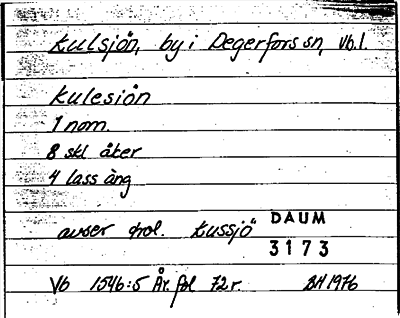 Kulsjön, by i Degerfors sn, Vb. l.
Kulesiön
1 nom.
8 skl åker
4 lass äng
avser trol. Kussjö
DAUM
3173
Vb 1546:5 År. fol 72r. BH 1976